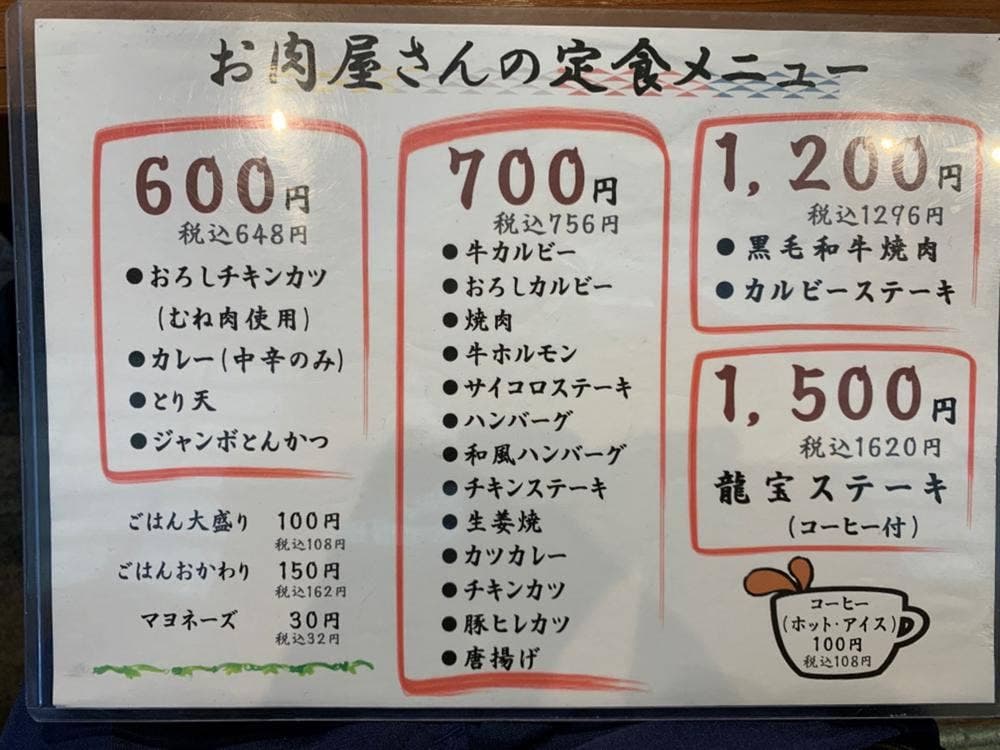 お肉屋さんの定食メニュー
600円
税込648円
●おろしチキンカツ
(むね肉使用)
●カレー(中辛のみ)
●とり天
●ジャンボとんかつ
ごはん大盛り 100円
税込108円
ごはんおかわり 150円
税込162円
マヨネーズ 30円
税込32円
700円
税込756円
●牛カルビー
●おろしカルビー
●焼肉
●牛ホルモン
●サイコロステーキ
●ハンバーグ
●和風ハンバーグ
●チキンステーキ
●生姜焼
●カツカレー
●チキンカツ
●豚ヒレカツ
●唐揚げ
1,200円
税込1296円
●黒毛和牛焼肉
●カルビーステーキ
1,500円
税込1620円
龍宝ステーキ
(コーヒー付)
コーヒー
(ホット・アイス)
100円
税込108円